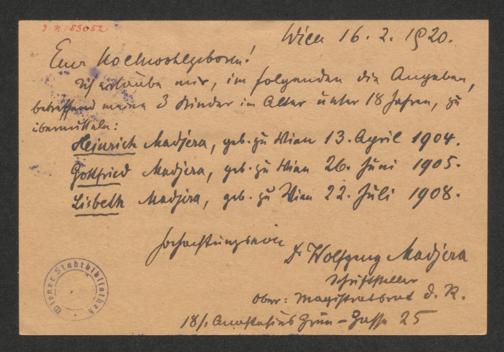 J. N. 53052
Wien 16. 2. 1920.
Euer Hochwohlgeboren!
Ich erlaube mir, im folgenden die Angaben,
betreffend meine 3 Kinder im Alter unter 18 Jahren, zu
übermitteln:
Heinrich Madjera, geb. zu Wien 13. April 1904.
Gottfried Madjera, geb. zu Wien 26. Juni 1905.
Lisbeth Madjera, geb. zu Wien 22. Juli 1908.
Hochachtungsvoll
Dr Wolfgang Madjera
Schriftsteller
Ober-Magistratsrat d. R.
18/1 Anastasius Grün-Gasse 25
Wiener Stadtbibliothek